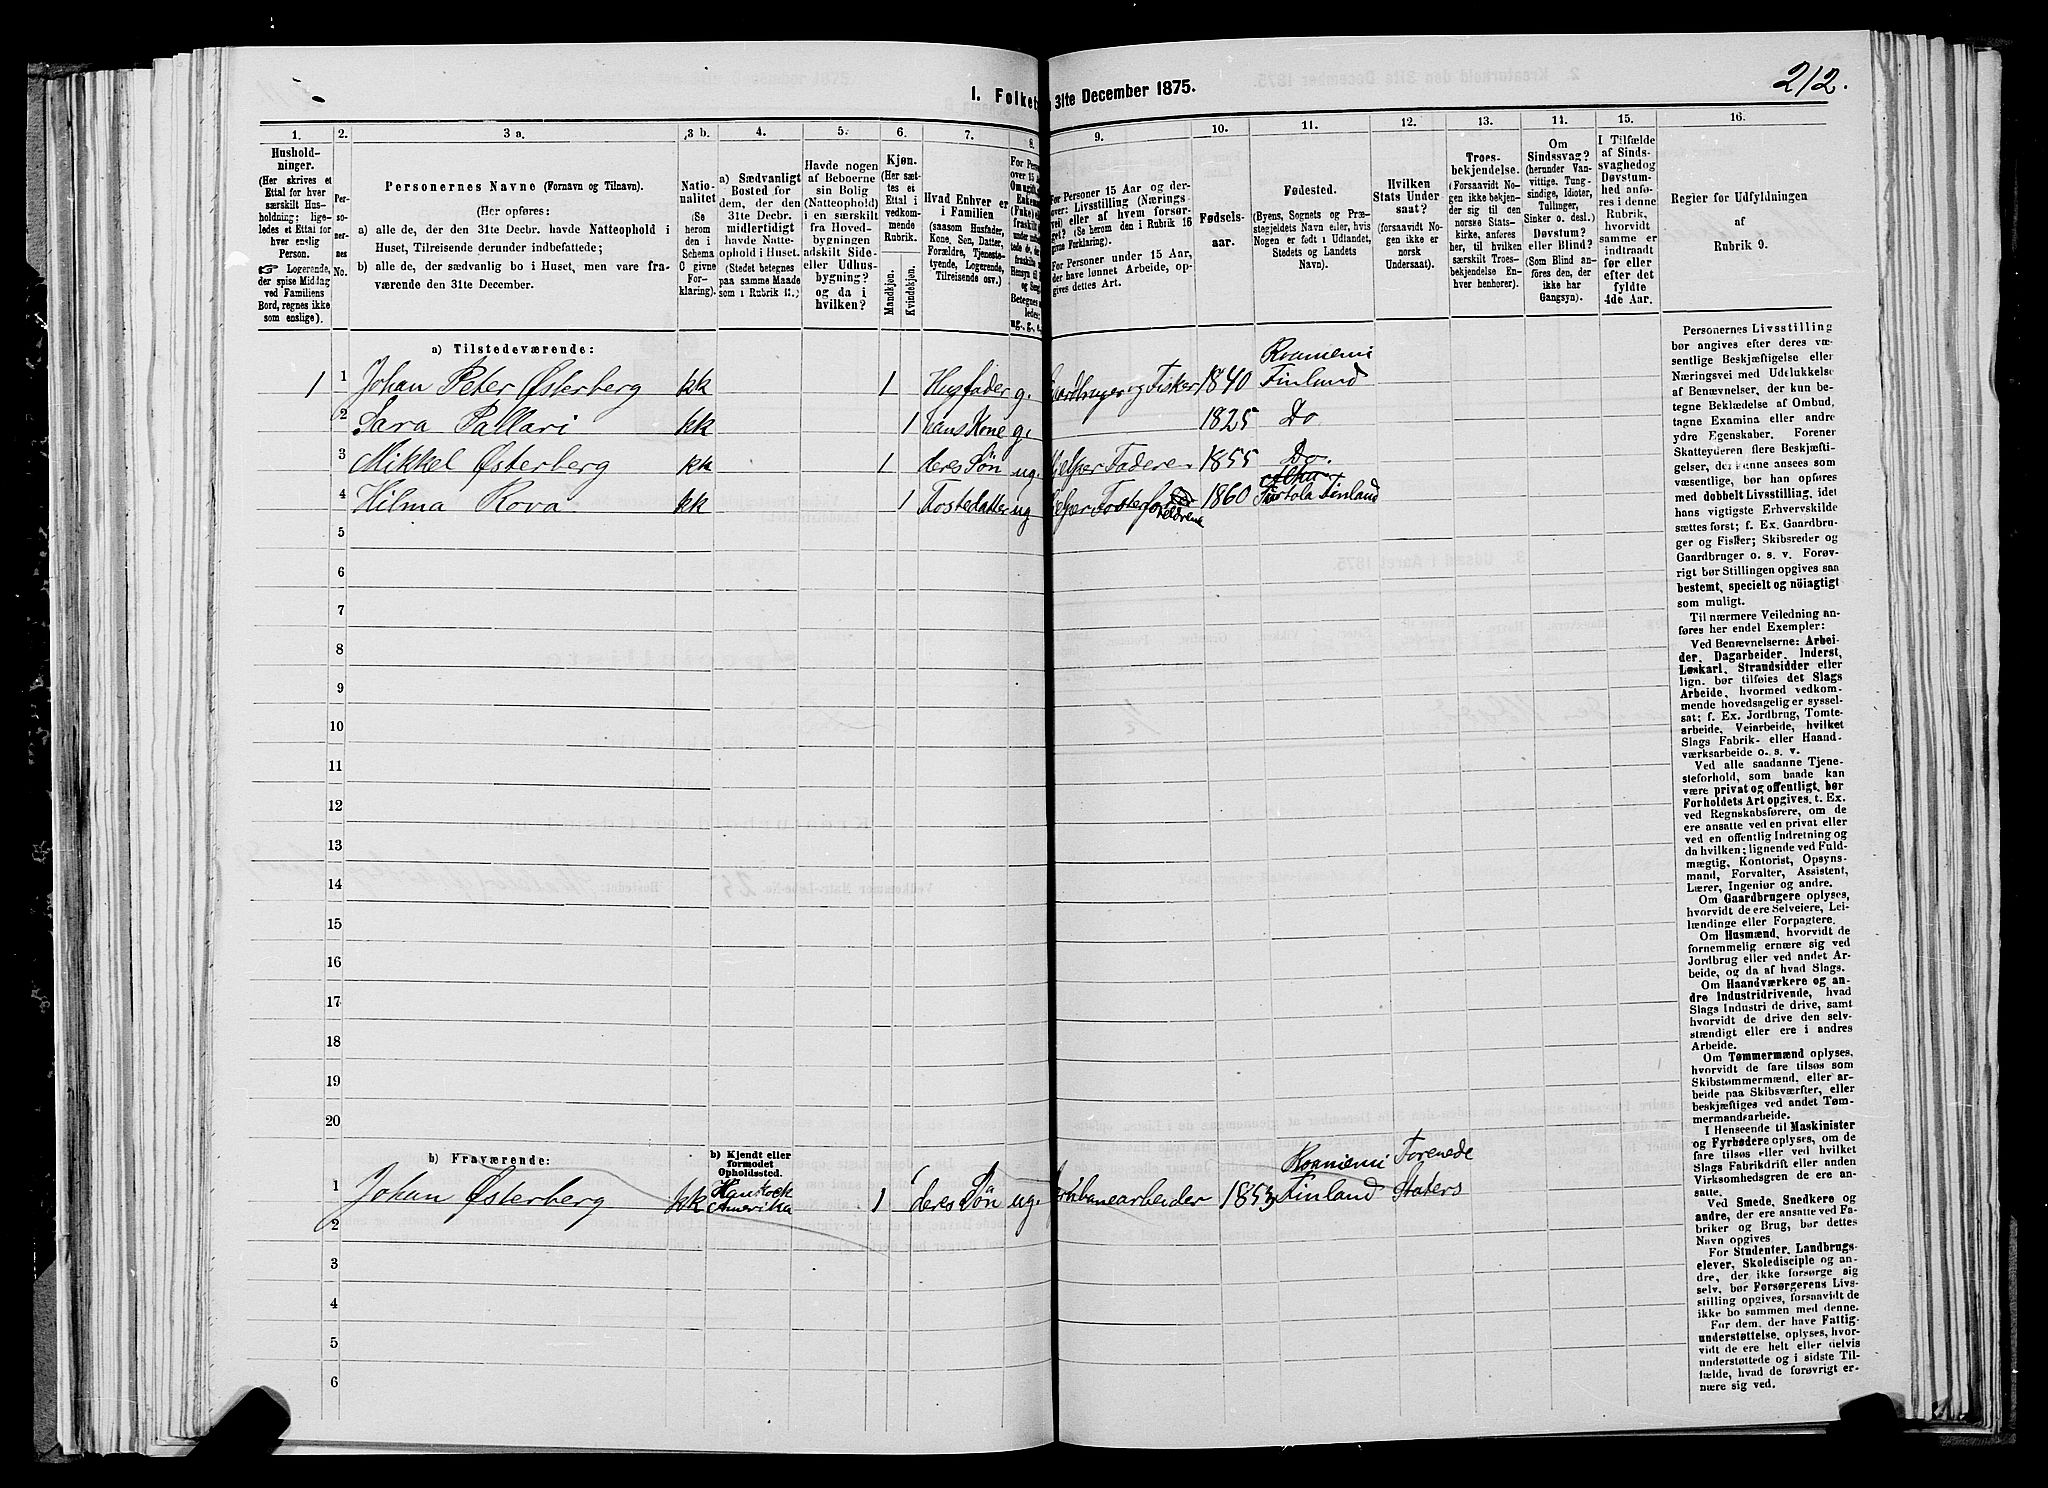 212.
I. Folket
31te December 1875.
1. 2. 3 a. 3 b. 4. 5. 6. 7. 8. 9. 10. 11. 12. 13. 14. 15. 16.
Hushold-
ninger.
(Her skrives et
Ettal for hver
særskilt Hus-
holdning; lige-
ledes et Ettal for
hver enslig
Person.
☞ Logerende,
der spise Middag
ved Familiens
Bord, regnes ikke
som enslige).
Per-
so-
ner-
nes
No.
Personernes Navne (Fornavn og Tilnavn).
(Her opføres:
a) alle de, der den 31te Decbr. havde Natteophold i
Huset, Tilreisende derunder indbefattede;
b) alle de, der sædvanlig bo i Huset, men vare fra-
værende den 31te December.
Natio-
nalitet
(Se
herom
den i
Schema
C givne
For-
klaring).
a) Sædvanligt
Bosted for
dem, der den
31te Decbr.
midlertidigt
havde Natte-
ophold i Huset.
(Stedet betegnes
paa samme Maade
som i Rubrik 11.)
Havde nogen
af Beboerne
sin Bolig
(Natteophold)
i en særskilt
fra Hoved-
bygningen
adskilt Side-
eller Udhus-
bygning?
og da i
hvilken?
Kjøn.
(Her sæt-
tes et
Ettal i
vedkom-
mende
Rubrik.
Mandkjøn.
Kvindekjøn.
Hvad Enhver er
i Familien
(saasom Husfader,
Kone, Søn, Datter,
Forældre, Tjeneste-
tyende, Logerende,
Tilreisende osv.)
For Personer 15 Aar og der-
over: Livsstilling (Nærings-
vei) eller af hvem forsør-
get? (Se herom den i Rubrik 16
givne Forklaring).
For Personer under 15 Aar,
der have lønnet Arbeide, op-
gives dettes Art.
Fødsels-
aar.
Fødested.
(Byens, Sognets og Præ-
stegjeldets Navn eller, hvis
Nogen er født i Udlandet,
Stedets og Landets
Navn).
Hvilken
Stats Under-
saat?
(forsaavidt No-
gen ikke er
norsk
Undersaat).
Troes-
bekjendelse.
(Forsaavidt No-
gen ikke bekjen-
der sig til den
norske Stats-
kirke, anføres
her, til hvilken
særskilt Troes-
bekjendelse En-
hver henhører).
Om
Sindssvag?
(herunder Van-
vittige. Tung-
sindige, Idioter,
Tullinger,
Sinker o. desl.)
Døvstum?
eller Blind?
(Som Blind an-
føres den, der
ikke har
Gangsyn).
I Tilfælde
af Sinds-
svaghed og
Døvstum-
hed anfø-
res i denne
Rubrik,
hvorvidt
samme er
indtraadt
før eller
efter det
fyldte
4de Aar.
Regler for Udfyldningen
af
Rubrik 9.
a) Tilstedeværende:
1 1 Johan Peter Østerberg kk 1 Husfader g. Gaardbruger og Fisker 1840 Roaniemi Finland
2 Sara Pallari kk 1 hans Kone g. 1825 Do
3 Mikkel Østerberg kk 1 deres Søn ug. Hjelper Faderen 1855 Do.
4 Hilma Rova kk 1 Fostedatter ug Hjelper Fosterforeldrene 1860 Turtola Finland
5
6
7
8
9
10
11
12
13
14
15
16
17
18
19
20
b) Fraværende:
b) Kjendt eller
formodet
Opholdssted.
1 Johan Østerberg kk Hankock Amerika 1 deres Søn ug. Grubearbeider 1853 Roaniemi Finland Forenede Staters
2
3
4
5
6
Personernes Livsstilling
bør angives efter deres væ-
sentlige Beskjæftigelse eller
Næringsvei med Udelukkelse
af Benævnelser, der kun be-
tegne Beklædelse af Ombud,
tagne Examina eller andre
ydre Egenskaber. Forener
Skatteyderen flere Beskjæf-
tigelser, der kunne ansees som
væsentlige, bør han opføres
med dobbelt Livsstilling, idet
hans vigtigste Erhvervskilde
sættes først; f. Ex. Gaardbru-
ger og Fisker; Skibsreder og
Gaardbruger o. s. v. Forøv-
rigt bør Stillingen opgives saa
bestemt, specielt og nöiagtigt
som muligt.
Til nærmere Veiledning an-
føres her endel Exempler:
Ved Benævnelserne: Arbei-
der, Dagarbeider, Inderst,
Løskarl, Strandsidder eller
lign. bør tilføies det Slags
Arbeide, hvormed vedkom-
mende hovedsagelig er syssel-
sat; f. Ex. Jordbrug, Tomte-
arbeide, Veiarbeide, hvilket
Slags Fabrik- eller Haand-
værksarbeide o. s. v.
Ved alle saadanne Tjene-
steforhold, som baade kan
være privat og offentligt, bør
Forholdets Art opgives, t. Ex.
ved Regnskabsførere, om de
ere ansatte ved en privat eller
ved en offentlig Indretning og
da hvilken; lignende ved Fuld-
mægtig, Kontorist, Opsyns-
mand, Forvalter, Assistent,
Lærer, Ingeniør og andre.
Om Gaardbrugere oplyses,
hvorvidt de ere Selveiere, Lei-
lændinge eller Forpagtere.
Om Husmænd, hvorvidt de
fornemmelig ernære sig ved
Jordbrug eller ved andet Ar-
beide, og da af hvad Slags.
Om Haandværkere og an-
dre Industridrivende, hvad
Slags Industri de drive, samt
hvorvidt de drive den selv-
stændigt eller ere i andres
Arbeide.
Om Tømmermænd oplyses,
hvorvidt de fare tilsøs som
Skibstømmermænd, eller ar-
beide paa Skibsværfter, eller
beskjæftiges ved andet Tøm-
mermandsarbeide.
I Henseende til Maskinister
og Fyrbødere oplyses, om de
fare tilsøs eller ved hvilket
Slags Fabrikdrift eller anden
Virksomhedsgren de ere an-
satte.
Ved Smede, Snedkere og
andre, der ere ansatte ved Fa-
briker og Brug, bør dettes
Navn opgives
For Studenter, Landbrugs-
elever, Skoledisciple og an-
dre, der ikke forsørge sig
selv, bør Forsørgerens Livs-
stilling opgives, forsaavidt de
ikke bo sammen med denne.
For dem, der have Fattig-
understøttelse, oplyses, hvor-
vidt de ere helt eller delvis
understøttede og i sidste Til-
fælde, hvad de forøvrigt er-
nære sig ved.